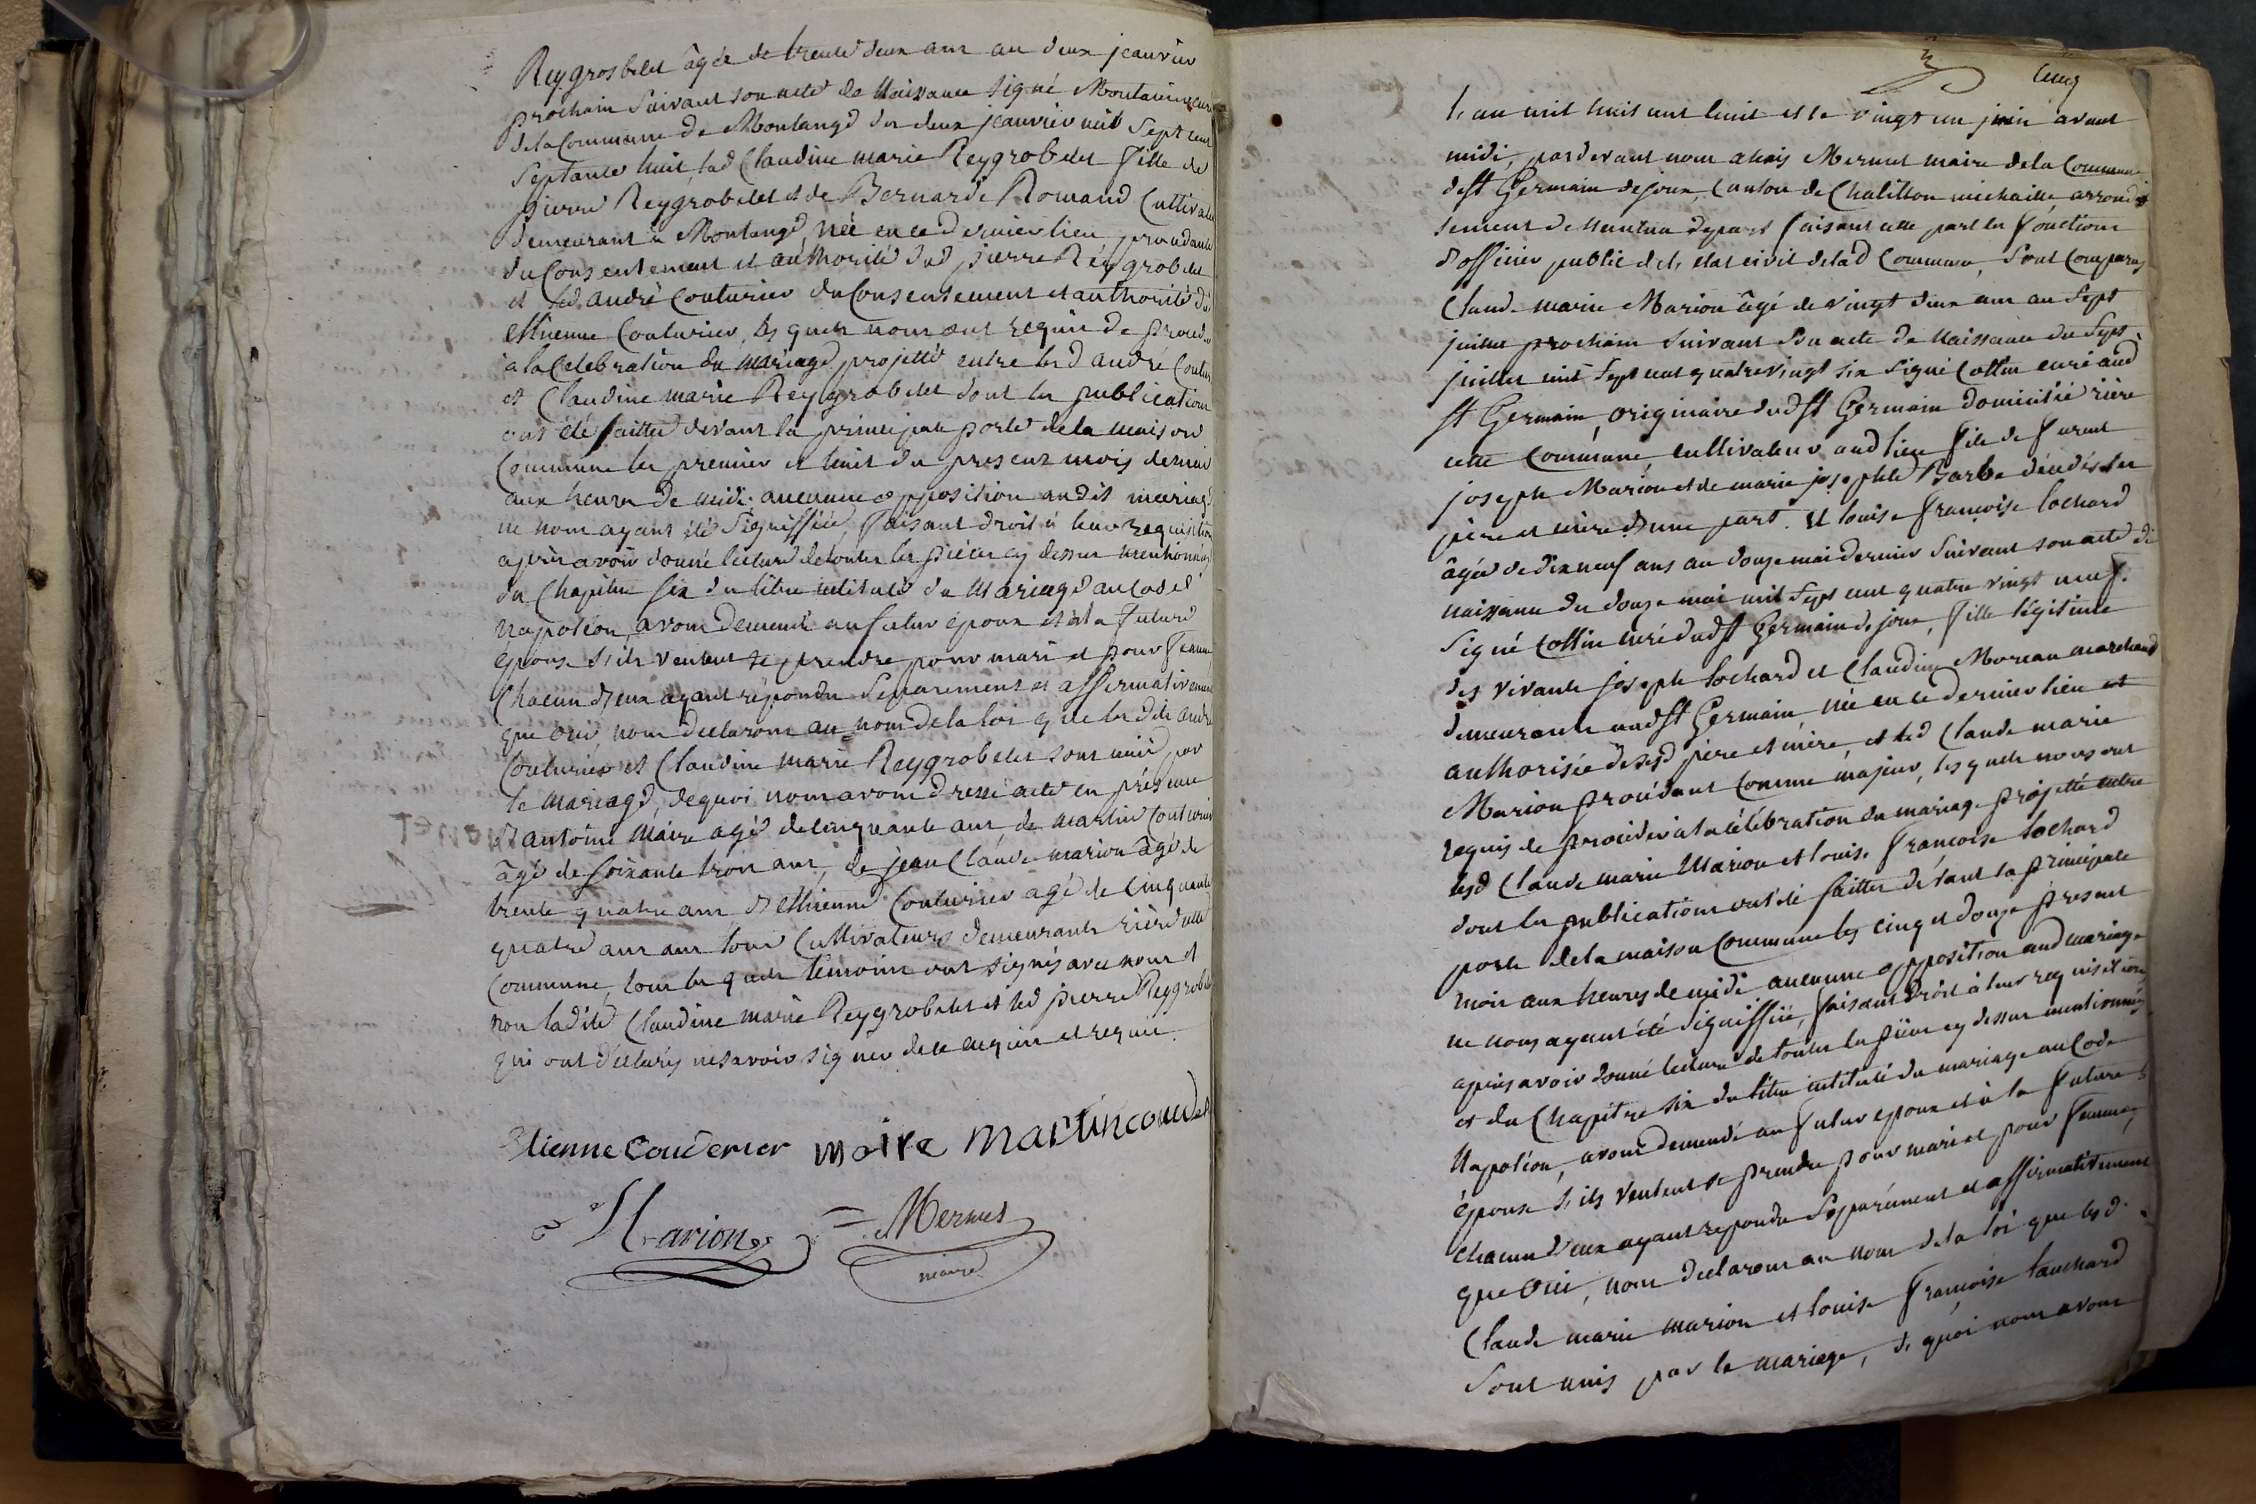 Reygrosbelet âgée de trente deux ans au deux jeanvier
prochain suivant son acte de Naissance signé Montanier curé
de la Commune de Montange du deux jeanvier mil sept cent
septante huit, lad Claudine marie Reygrobelet fille de
pierre Reygrobelet et de Bernarde Romand Cultivat
demeurant à Montange, née en ce dernier lieu, procedante
du Consentement et authorité dud pierre Reygrobelet
et led. andré Couturier du Consentement et authorité du
ethienne Couturier, les quels nous ont requis de proced
à la Celebration du mariage projetté entre led andré Coutur
et Claudine marie Reygrobelet dont les publications
ont été faittes devant la principale porte de la maison
Commune les premier et huit du present mois
aux heures de midi. aucunne opposition audit mariag
ne nous ayant été signiffiée, faisant droit à leur requisition
après avoir donné lecture de toutes les pièces cy dessus mentionnés
du Chapitre six du titre intitulé du Mariage au Code
Napoléon, avons demandé au futur époux et à la future
épouse s'ils veulent se prendre pour mari et pour femme
Chacun d'eux ayant répondu séparement et affirmativement
que oui, nous declarons au nom de la loi que lesdits andré
Couturier et Claudine marie Reygrobelet sont unis par
le mariage, de quoi nous avons dressé acte en présence
d'antoine Maire agé de cinquante ans de martin Couturier
âgé de soixante trois ans, de jean Claude marion âgé de
trente quatre ans d'ethienne Couturier agé de cinquante
quatre ans ans tous Cultivateurs demeurants rière cette
Commune, tous les quels témoins ont signés avec nous et
non ladite Claudine marie Reygrobelet et led pierre Reygrobelet
qui ont déclarés ne savoir signer de ce enquis et requis.
Etienne Couderier maire Martincoudet
Marion Mernet
maire
cinq
L'an mil huit cent huit et le vingt un juin avant
midi, pardevant nous alexis Mernet maire de la Commune
de St Germain de joux, Canton de Chatillon michaille arrondis
sement de Nantua depart faisant cette part les fonctions
d'officier public de l'etat civil de lad Commune, sont comparus
Claude marie Marion âgé de vingt deux ans au sept
juillet prochain suivant son acte de naissance du sept
juillet mil sept cent quatrevingt six signé Collin curé aud
St Germain, originaire dud St Germain domicilié rière
cette Commune, cultivateur aud lieu fils de furent
joseph Marion et de marie josephte Barbe décédés ses
père et mère d'une part. et louise françoise lochard
âgée de dix neuf ans au douze mai dernier suivant son acte de
naissance du douze mai mil sept cent quatre vingt neuf.
signé Collin curé dud St Germain de joux, fille légitime
des vivants joseph lochard et Claudine Moreau marchand
demeurants aud St Germain, née en ce dernier lieu et
authorisée de sesd père et mère, et led Claude marie
Marion procédant Comme majeur, les quels nous ont
requis de procéder à la célébration du mariage projetté entre
lesd Claude marie Marion et louise françoise lochard
dont les publications ont été faittes devant la principale
porte de la maison Commune les cinq et douze present
mois aux heures de midi aucunne opposition aud mariage
ne nous ayant été signiffiée, faisant droit à leur requisition
après avoir donné lecture de toutes les pièces cy dessus mentionnés
et du Chapitre six du titre intitulé du mariage au Code
Napoléon, avons demandé au futur epoux et à la future
épouse s'ils veulent se prendre pour mari et pour femme,
chacun d'eux ayant repondu séparément et affirmativement
que oui, nous declarons au nom de la loi que lesd.
Claude marie marion et louise françoise lauchard
sont unis par le mariage, de quoi nous avons